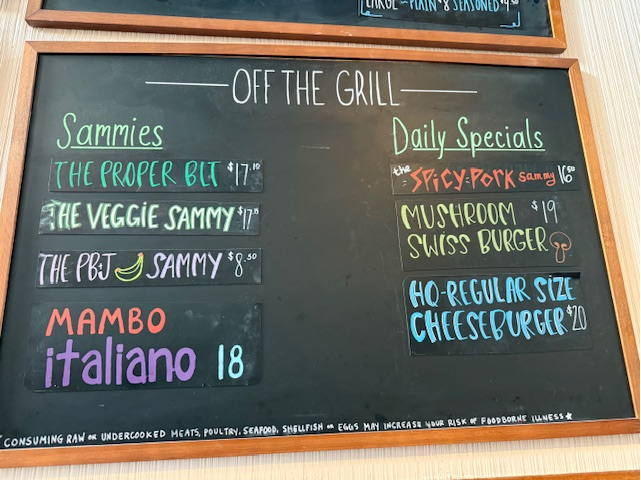 LARGE ~ PLAIN $8 SEASONED $9.50
OFF THE GRILL
Sammies
THE PROPER BLT $17.10
THE VEGGIE SAMMY $17.15
THE PB&J SAMMY $8.50
MAMBO
italiano 18
Daily Specials
the SPICY PORK sammy 16.50
MUSHROOM $19
SWISS BURGER
HQ-REGULAR SIZE
CHEESEBURGER $20
*CONSUMING RAW OR UNDERCOOKED MEATS, POULTRY, SEAFOOD, SHELLFISH OR EGGS MAY INCREASE YOUR RISK OF FOODBORNE ILLNESS*